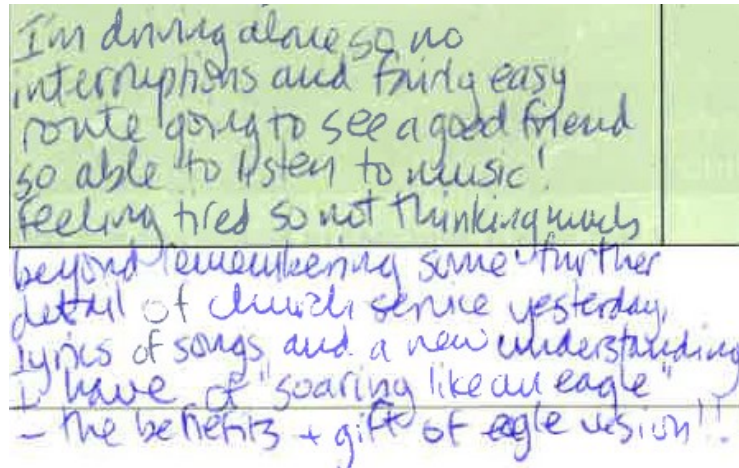 I'm driving alone so no
interruptions and fairly easy
route going to see a good friend
so able to listen to music!
Feeling tired so not thinking much
beyond remembering some further
detail of church service yesterday,
lyrics of songs and a new understanding
I have of "soaring like an eagle"
- the benefits + gift of eagle vision!!